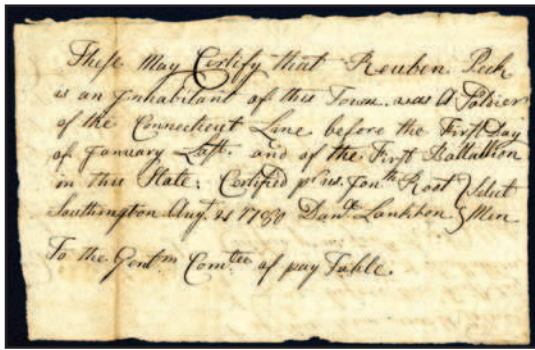 These May Certify that Reuben Peck
is an Inhabitant of this Town. was A Soldier
of the Connecticut Line before the First Day
of January Last. and of the First Battallion
in this State; Certified pr us. Jonth Root } Select
Southington Augt 21 1780 Danl Lankton } Men
To the Gentm Comtee of pay Table.